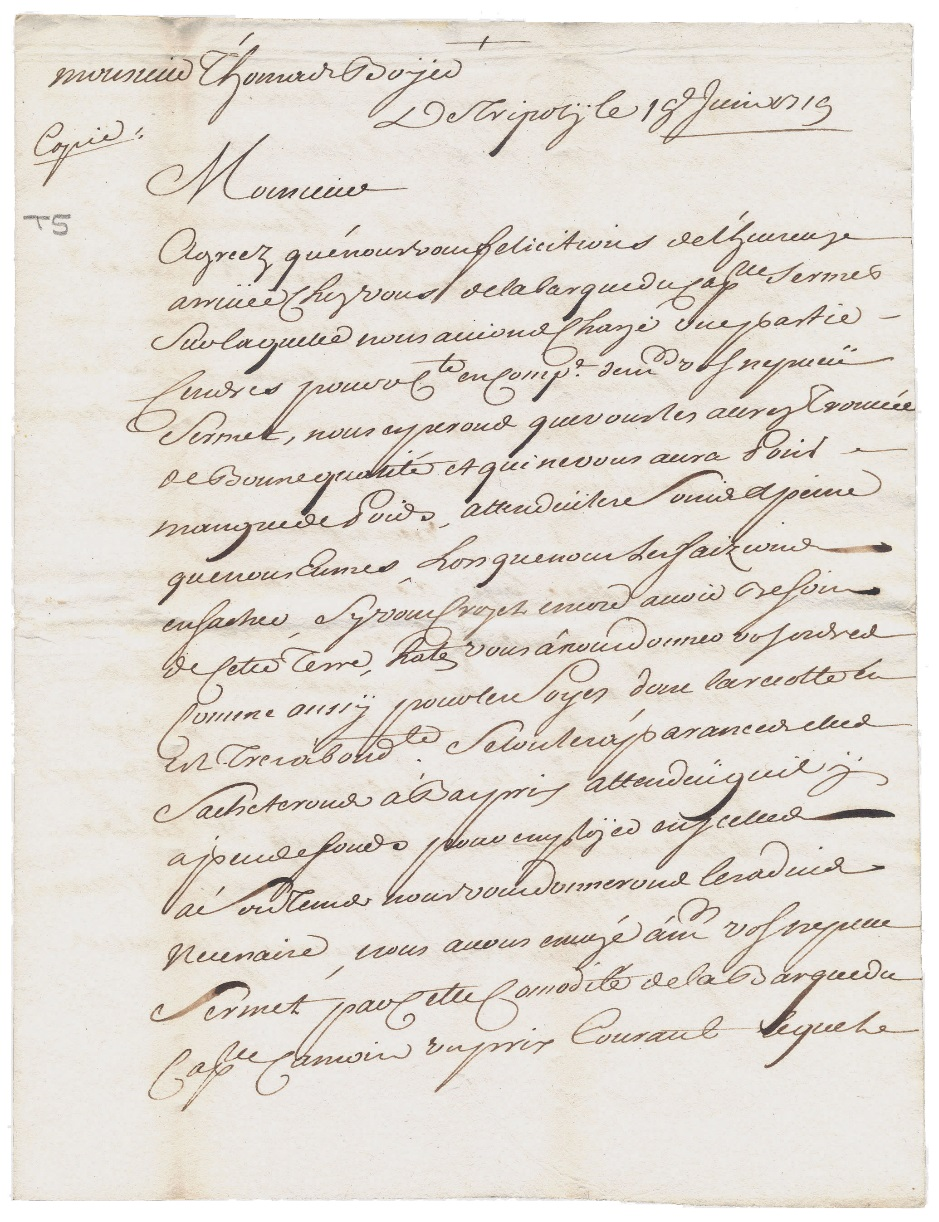 monsieur Thomas Boyer
De Tripoly le 19e Juin 1719
Copie :
T5
Monsieur
Agreez qué nous vous félicitions de l'hureuse
arrivée chez vous de la barque du Capne Sermet
sur laquelle nous avions chargé une partie
Cendres pour vre Cte en Compe de mrs vos nepveu
Sermet, nous esperons que vous les aurez trouvée
de Bonne qualité et qui ne vous aura point
manque de Poids, attendu les soins et peine
que nous Eumes Lors que nous les faizions
ensacher, Sy vous croyez encore avoir Besoin
de Cette Terre, hatez vous á nous donner vos ordres
Comme aussy pour les Soyes dont la recolte en
Est Tres abondte. Selon les áparances elles
s'acheterons á Bas pris attendu quil y
a peu de fonds pour employer en jcelles
áé son Tems nous vous donnerons les advis
necessaire, nous avons envoyé á mrs vos nepveu
Sermet par Cette Comodité de la Barque du
Capne Camoin un pris Courant lequel